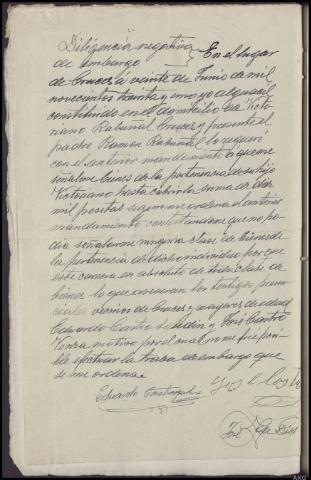 Diligencia negativa
de embargo } En el lugar
de Cruces á veinte de Junio de mil
novecientos treinta y uno yo alguacil
constituido en el domicilio de Victo
riano Rabuñal Cruces y presente el
padre Ramon Rabuñal lo requerí
con el anterior mandamiento á que me
señalase bienes de la pertenencia de su hijo
Victoriano hasta cubrir la suma de dos
mil pesetas segun me ordena el anterior
mandamiento contestandome que no po
dia señalarme ninguna clase de bienes de
la pertenencia de dicho individuo por que
este carece en absoluto de toda clase de
bienes lo que aseveran los testigos presen
ciales vecinos de Cruces y mayores de edad
Eduardo Castro y José Castro
motivo por el cual no me fué posi
ble efectuar la traba de embargo que
se me ordena.
Eduardo Castro
José